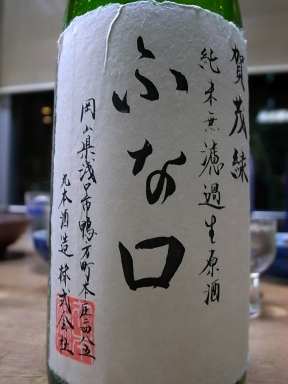 賀茂緑
純米無濾過生原酒
ふな口
岡山県浅口市鴨方町本庄二四八五
丸本酒造株式会社